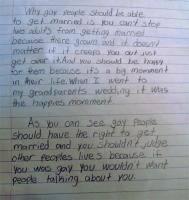 Why gay people should be able
to get married is you can't stop
two adults from getting married
because there grown and it doesn't
matter if it creeps you out just
get over it. And you should be happy
for them because it's a big moment
in their life. When I went to
my grandparents wedding it was
the happies momment.
As you can see gay people
should have the right to get
married and you shouldn't judge
other peoples lives because if
you was gay you wouldn't want
people talking about you.